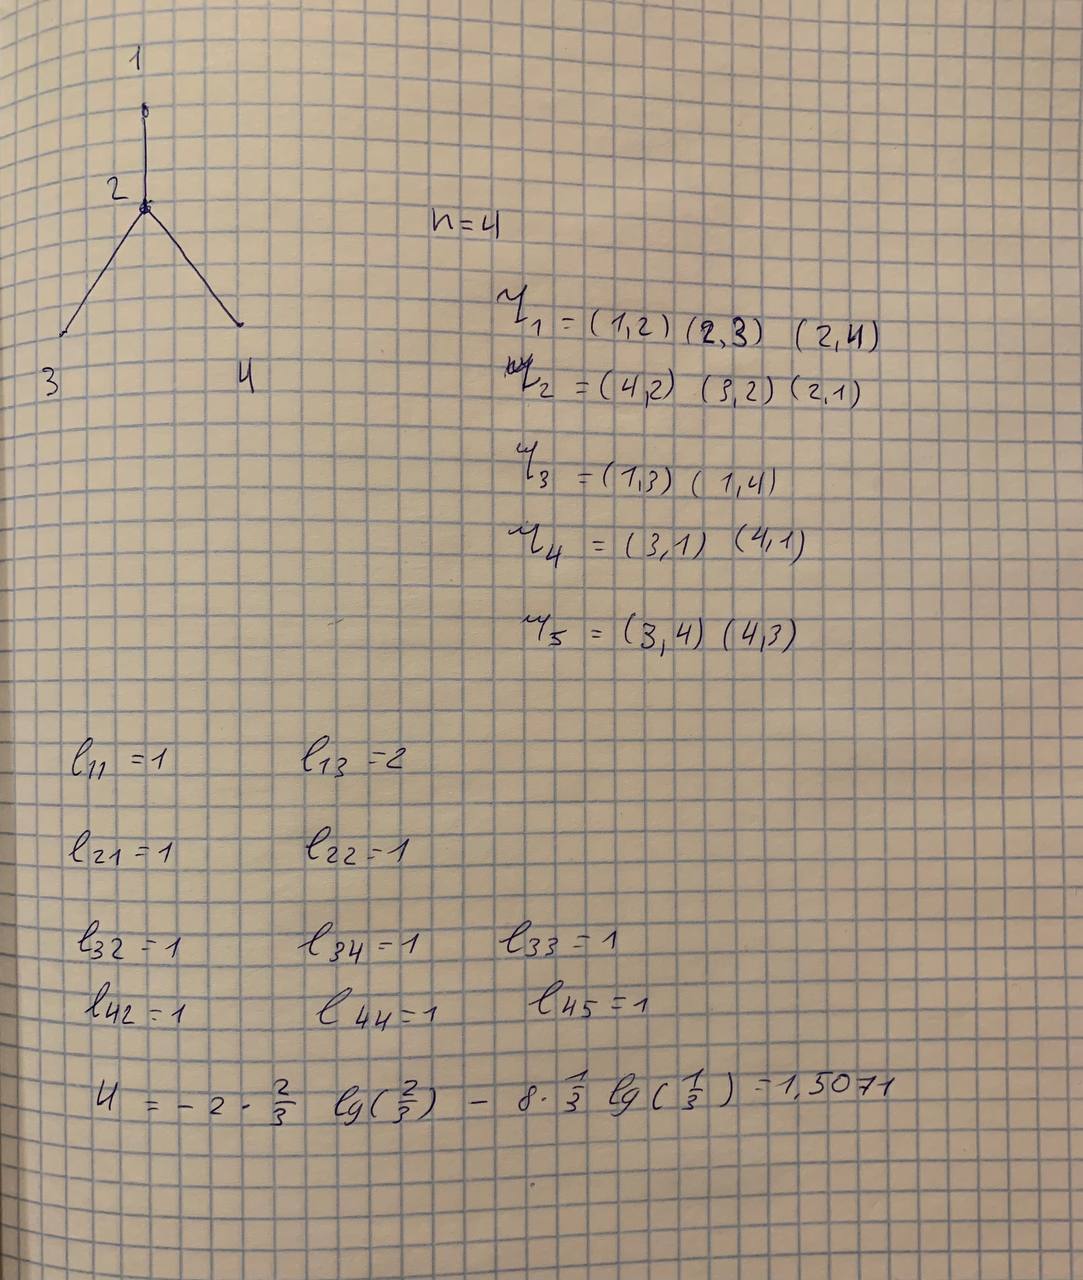 1
2
n=4
3 4
η₁ = (1,2) (2,3) (2,4)
η₂ = (4,2) (3,2) (2,1)
η₃ = (1,3) (1,4)
η₄ = (3,1) (4,1)
η₅ = (3,4) (4,3)
l₁₁ = 1 l₁₃ = 2
l₂₁ = 1 l₂₂ = 1
l₃₂ = 1 l₃₄ = 1 l₃₃ = 1
l₄₂ = 1 l₄₄ = 1 l₄₅ = 1
H = - 2 · 2/3 lg(2/3) - 8 · 1/3 lg(1/3) = 1,5071